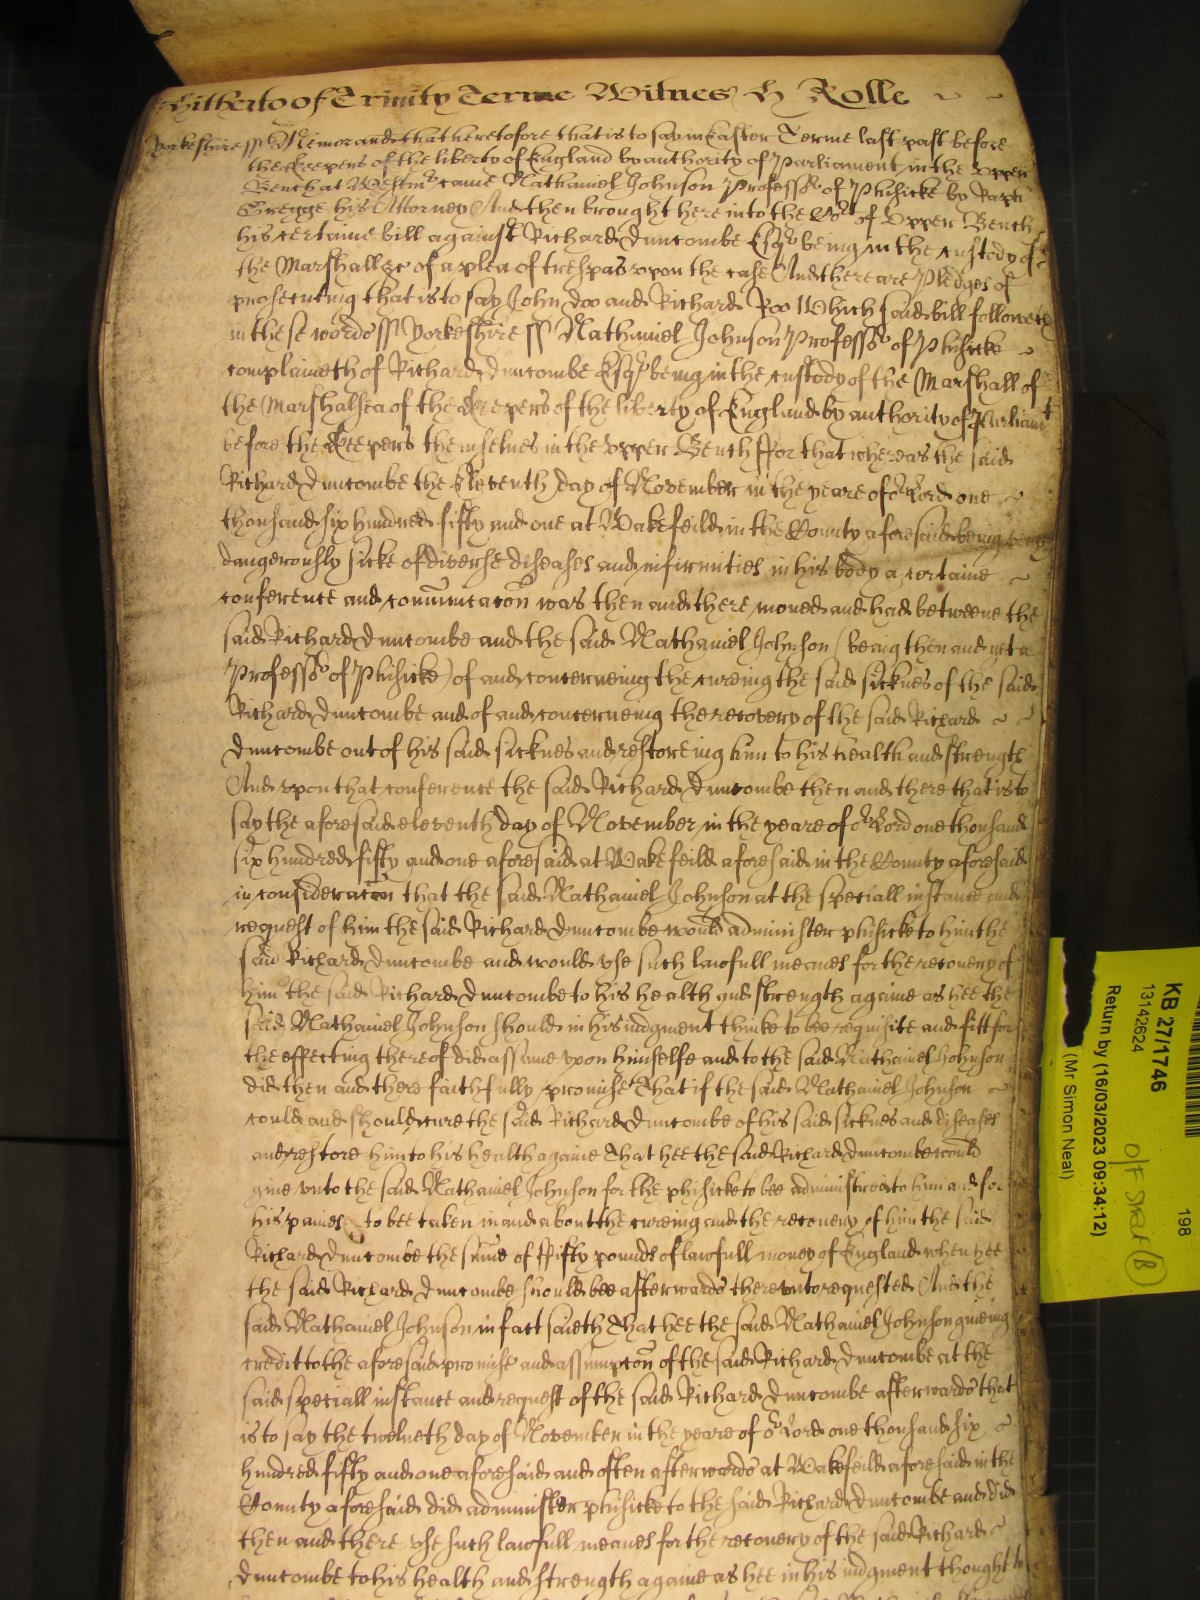 Hitherto of Trinity Terme Witnes H Rolle
Yorkeshire ss Memorand that heretofore that is to say in Easter Terme last past before
the Keepers of the liberty of England by authority of Parliament in the Upper
Bench at Westmr came Nathaniel Johnson Professor of Phisicke by Raph
Gregge his Attorney And then brought here into the Cort of Upper Bench
his certaine bill against Richard Duncombe Esqr being in the custody of
the Marshall &c of a plea of trespas upon the case And there are Pledges of
prosecuting that is to say John Doo and Richard Roo Which said bill followeth
in these words ss Yorkeshire ss Nathaniel Johnson Professor of Phisicke
complaineth of Richard Duncombe Esqr being in the custody of the Marshall of
the Marshalsea of the Keepers of the liberty of England by authority of Parliamt
before the Keepers themselves in the upper Bench ffor that whereas the said
Richard Duncombe the Eleventh day of November in the yeare of or Lord one
thousand six hundred fifty and one at Wakefeild in the County aforesaid being
dangerously sicke of diverse diseases and infirmities in his body a certaine
conference and comunicacon was then and there moved and had betweene the
said Richard Duncombe and the said Nathaniel Johnson (being then and yet a
Professor of Phisicke) of and concerneing the cureing the said sicknes of the said
Richard Duncombe and of and concerneing the recovery of the said Richard
Duncombe out of his said sicknes and restoreing him to his health and strength
And upon that conference the said Richard Duncombe then and there that is to
say the aforesaid eleventh day of November in the yeare of or Lord one thousand
six hundred fifty and one aforesaid at Wakefeild aforesaid in the County aforesaid
in consideracon that the said Nathaniel Johnson at the speciall instance and
request of him the said Richard Duncombe would administer phisicke to him the
said Richard Duncombe and would use such lawfull meanes for the recovery of
him the said Richard Duncombe to his health and strength againe as hee the
said Nathaniel Johnson should in his iudgment thinke to bee requisite and fitt for
the effecting thereof did assume upon himselfe and to the said Nathaniel Johnson
did then and there faithfully promise That if the said Nathaniel Johnson
could and should cure the said Richard Duncombe of his said sicknes and diseases
and restore him to his health againe That hee the said Richard Duncombe would
give unto the said Nathaniel Johnson for the phisicke to bee administred to him and for
his paines to bee taken in and about the cureing and the recovery of him the said
Richard Duncombe the sume of ffifty pounds of lawfull money of England when hee
the said Richard Duncombe should bee afterwards thereunto requested And the
said Nathaniel Johnson in fact saieth That hee the said Nathaniel Johnson giveing
credit to the aforesaid promise and assumpcon of the said Richard Duncombe at the
said speciall instance and request of the said Richard Duncombe afterwards that
is to say the twelveth day of November in the yeare of or Lord one thousand six
hundred fifty and one aforesaid and often afterwards at Wakefeild aforesaid in the
County aforesaid did administer phisicke to the said Richard Duncombe and did
then and there use such lawfull meanes for the recovery of the said Richard
Duncombe to his health and strength againe as hee in his iudgment thought to
KB 27/1746
198
13142624
O/F Shelf (B)
Return by (16/03/2023 09:34:12)
(Mr Simon Neal)